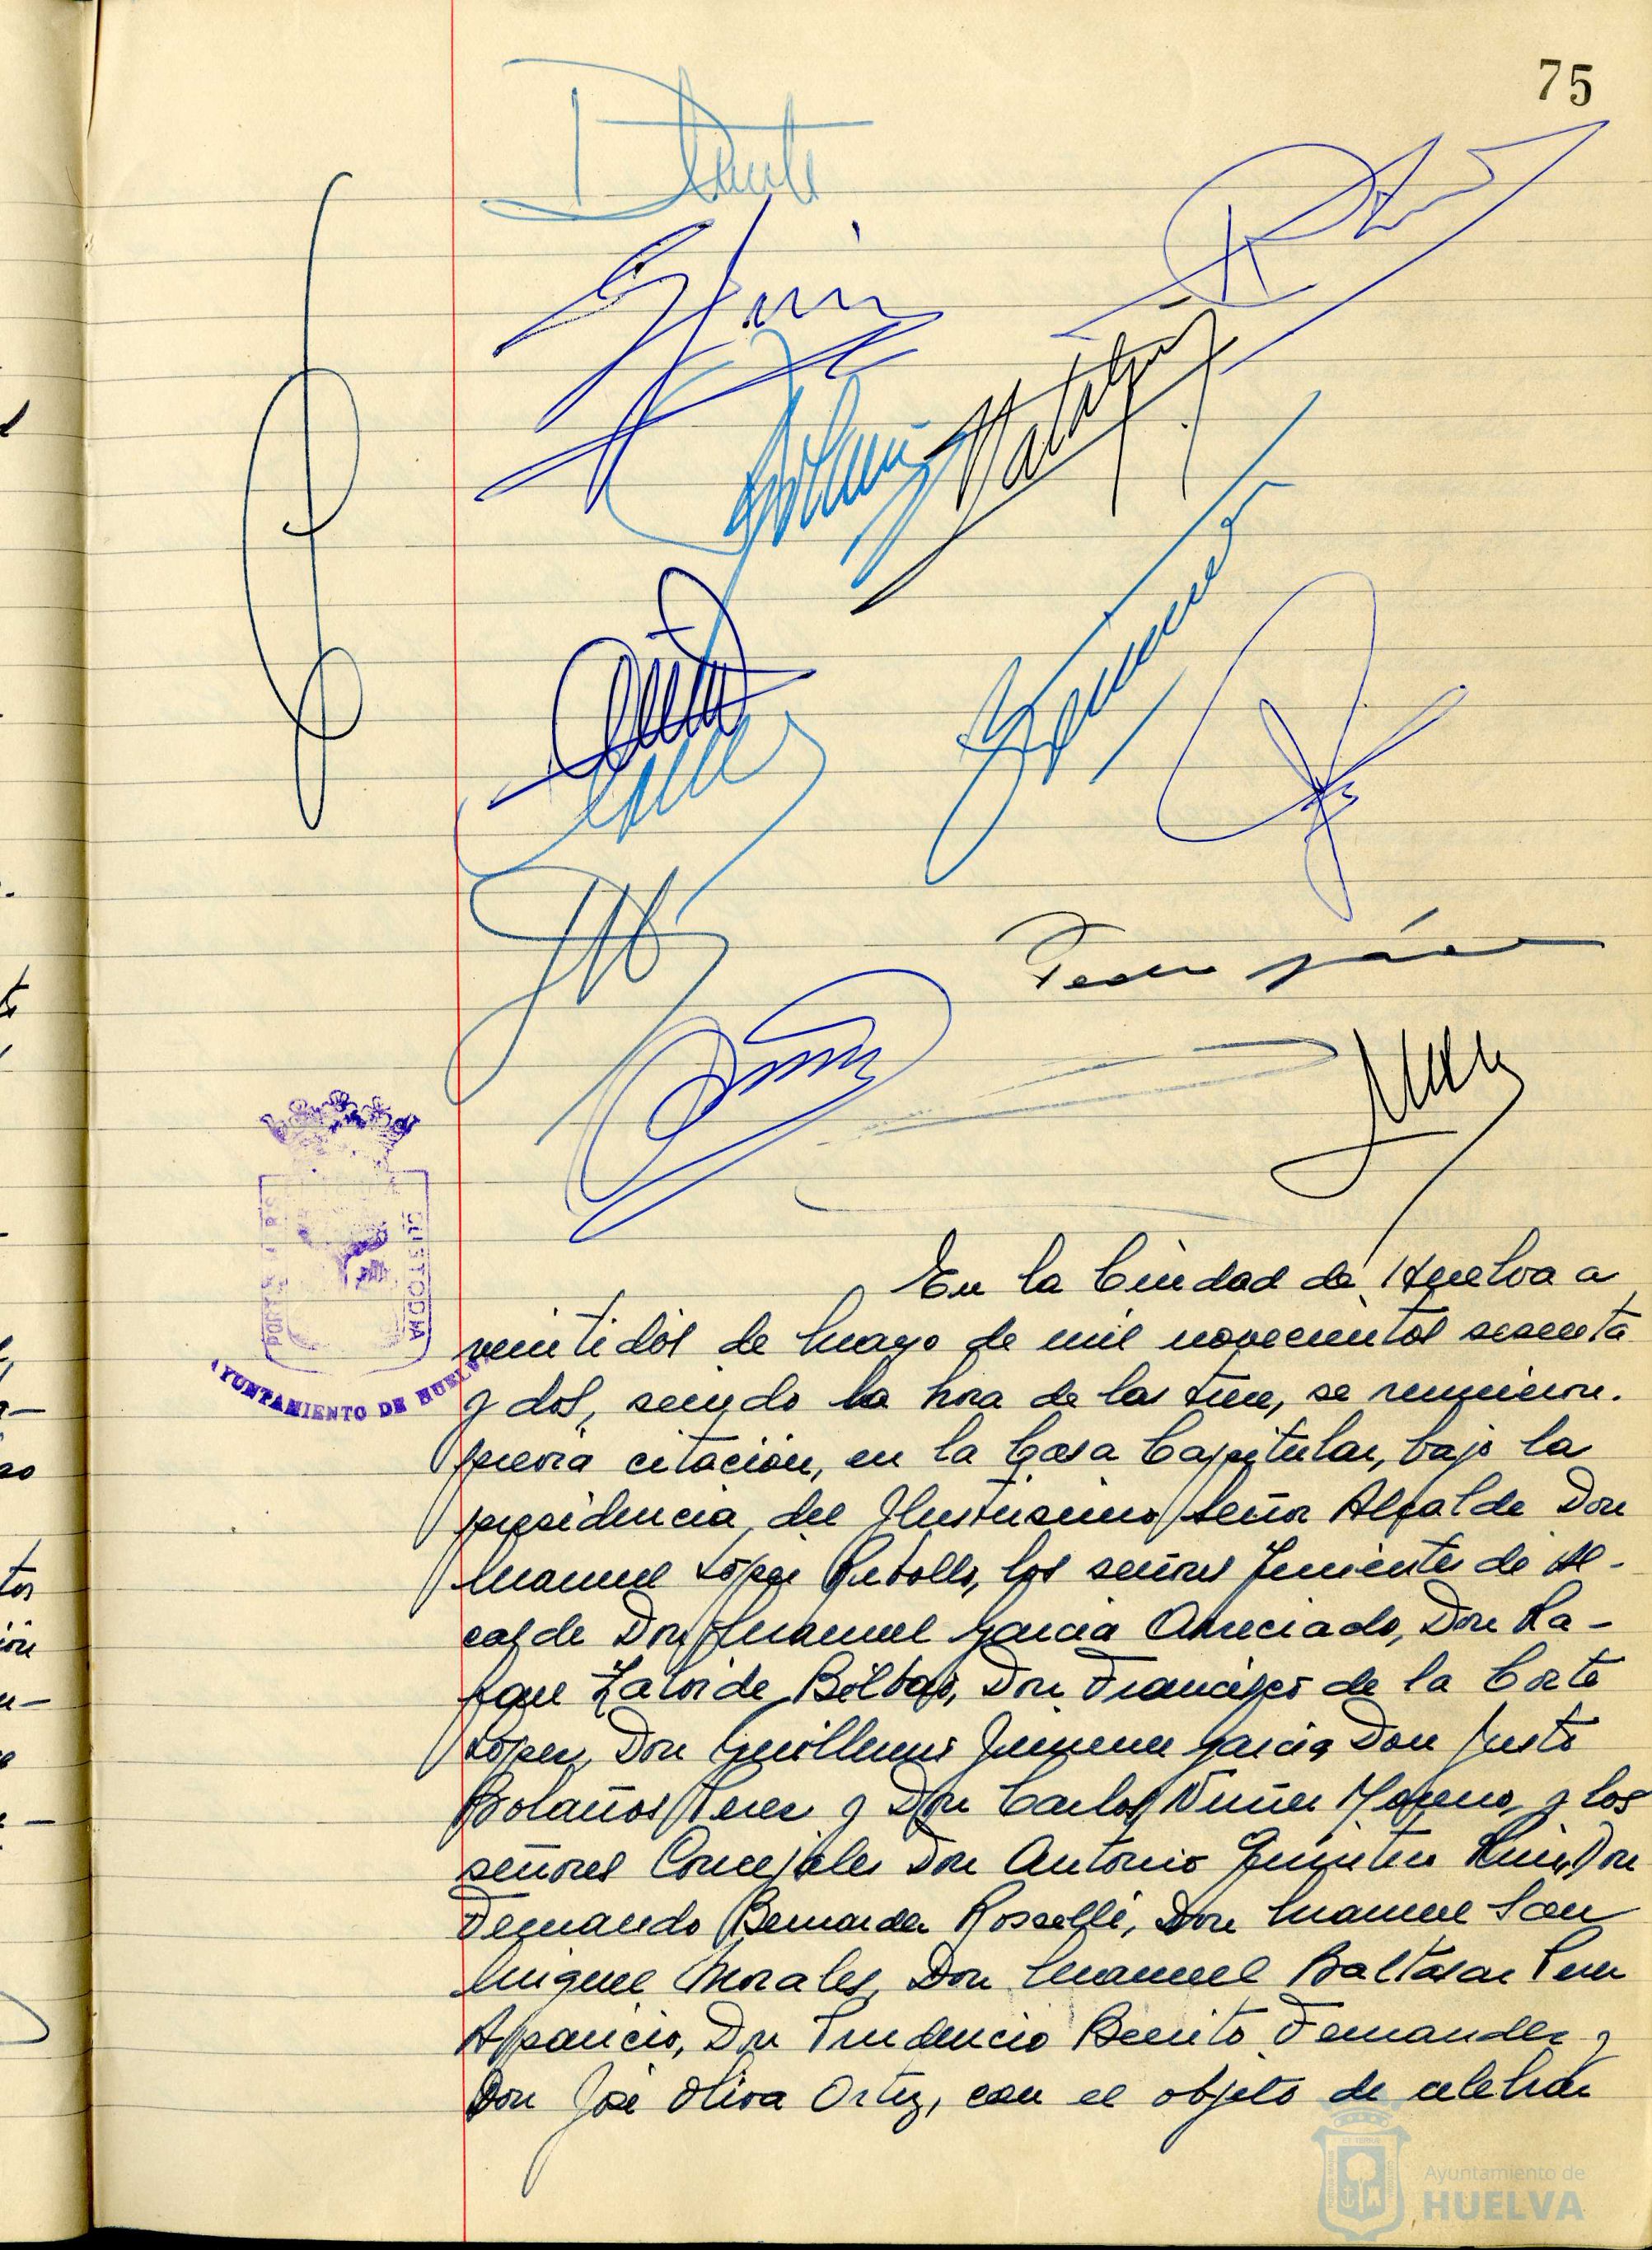 75
Pedro
PORTUS MARIS
CUSTODIA
AYUNTAMIENTO DE HUELVA
En la Ciudad de Huelva a
veintidós de Mayo de mil novecientos sesenta
y dos, siendo la hora de las trece, se reunieron.
previa citación, en la Casa Capitular, bajo la
presidencia del Ilustrísimo Señor Alcalde Don
Manuel López Rebollo, los señores Tenientes de Al-
calde Don Manuel García Arreciado, Don Ra-
fael Zalvide Bilbao, Don Francisco de la Corte
López, Don Guillermo Jimenez García, Don Justo
Bolaños Perez y Don Carlos Nuñez Moreno, y los
señores Concejales Don Antonio Ruiz, Don
Fernando Bernardez Rosselli, Don Manuel San
Miguel Morales, Don Manuel Baltasar Perez
Aparicio, Don Prudencio Benito Fernandez y
Don José Oliva Ortiz, con el objeto de celebrar
Ayuntamiento de
HUELVA